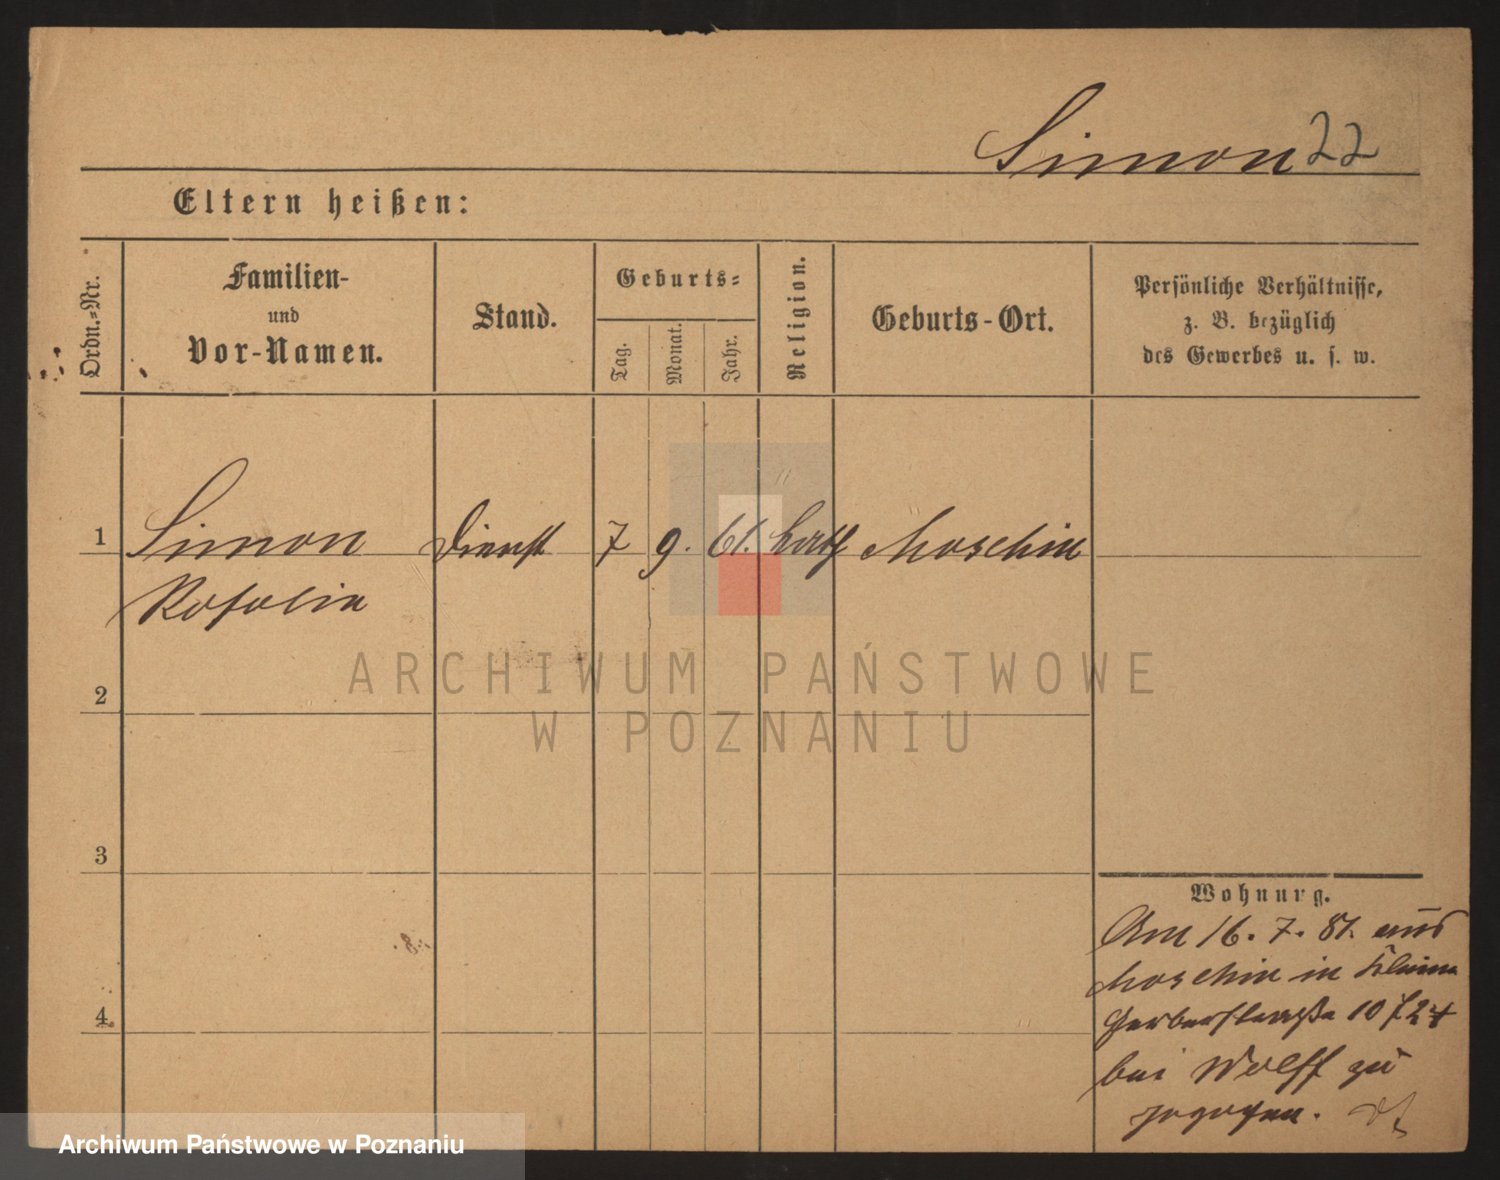 Simon 22
Eltern heißen:
Ordn.-Nr.
Familien-
und
Vor-Namen.
Stand.
Geburts-
Tag.
Monat.
Jahr.
Religion.
Geburts-Ort.
Persönliche Verhältnisse,
z. B. bezüglich
des Gewerbes u. s. w.
1 Simon Dienst 7 9. 61. kath Moschin
Rosalia
ARCHIWUM PAŃSTWOWE
W POZNANIU
2
3
4
Wohnung.
Am 16. 7. 81. aus
Moschin in Kleine
Gerberstraße 10
bei Wolff zu
gezogen.
Archiwum Państwowe w Poznaniu